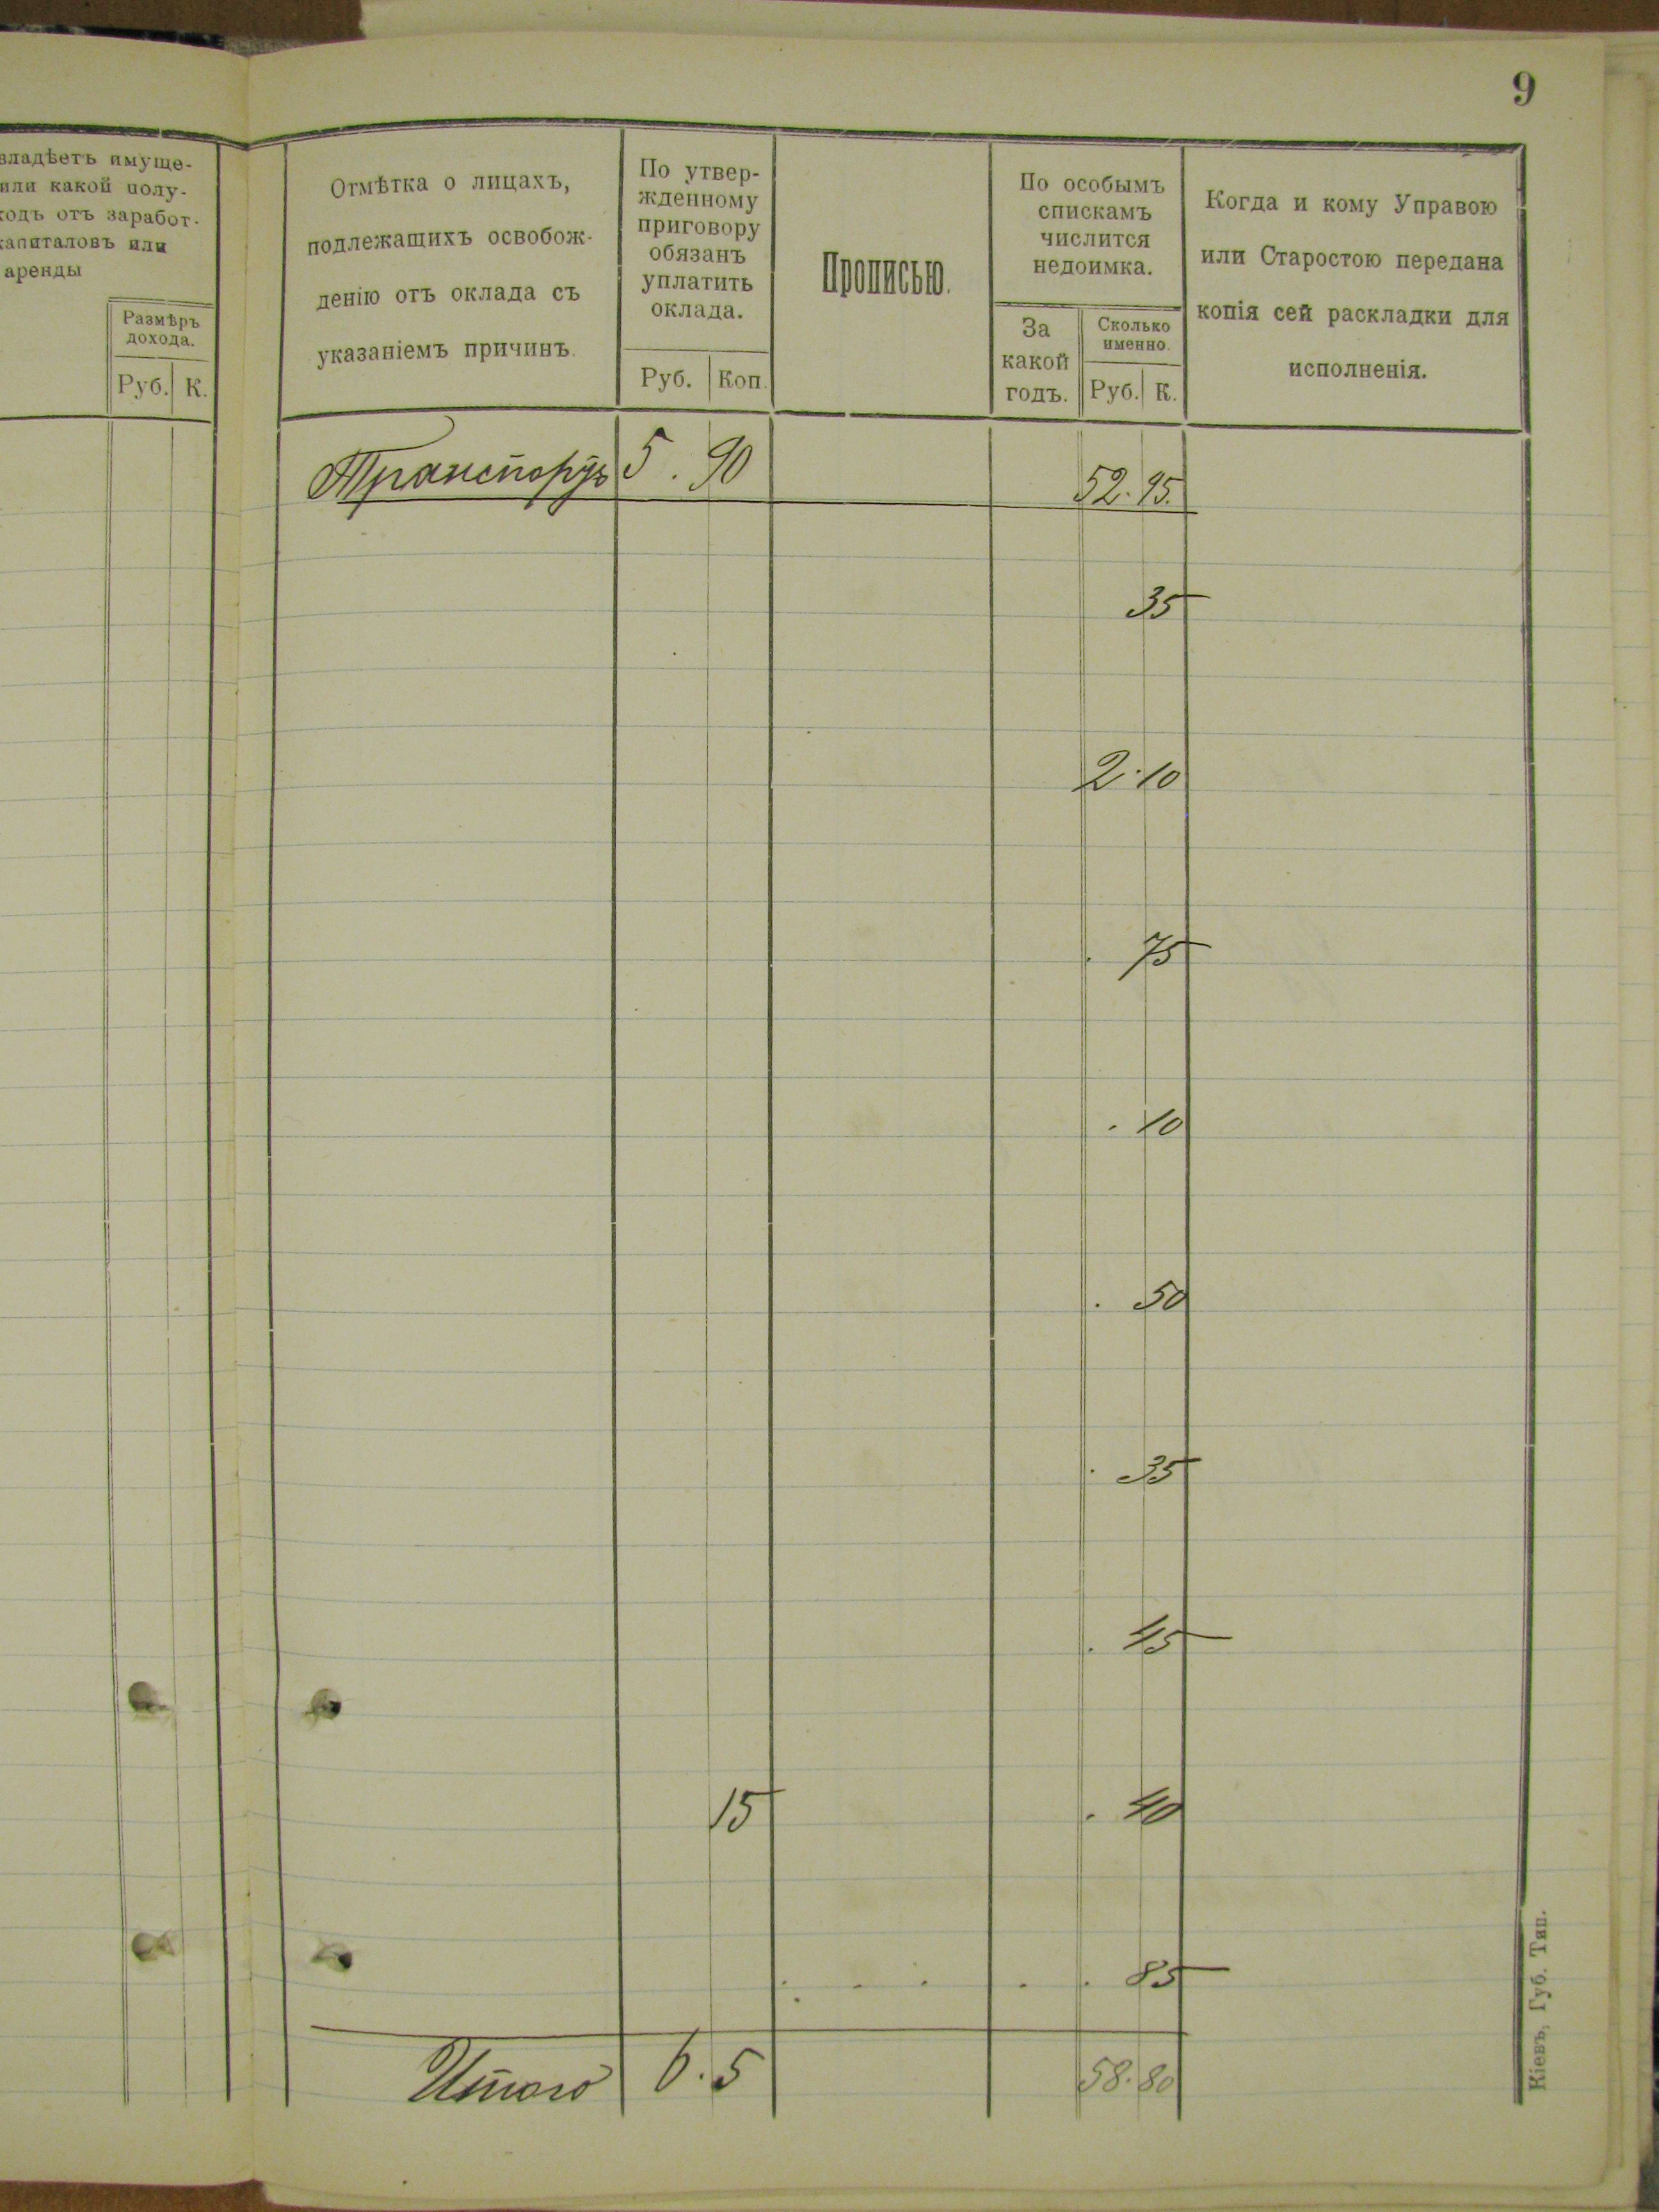 9
владѣетъ имуще-
или какой полу-
ходъ отъ заработ-
капиталовъ или
аренды
Размѣръ
дохода.
Руб. К.
Отмѣтка о лицахъ,
подлежащихъ освобож-
денію отъ оклада съ
указаніемъ причинъ.
По утвер-
жденному
приговору
обязанъ
уплатить
оклада.
Руб. Коп.
Прописью.
По особымъ
спискамъ
числится
недоимка.
За
какой
годъ.
Сколько
именно.
Руб. К.
Когда и кому Управою
или Старостою передана
копія сей раскладки для
исполненія.
Транспортъ 5. 90 52. 95.
35
2. 10
. 75
. 10
. 50
. 35
. 45
15 . 40
. . . . . 85
Итого 6. 5 58. 80
Кіевъ, Губ. Тип.